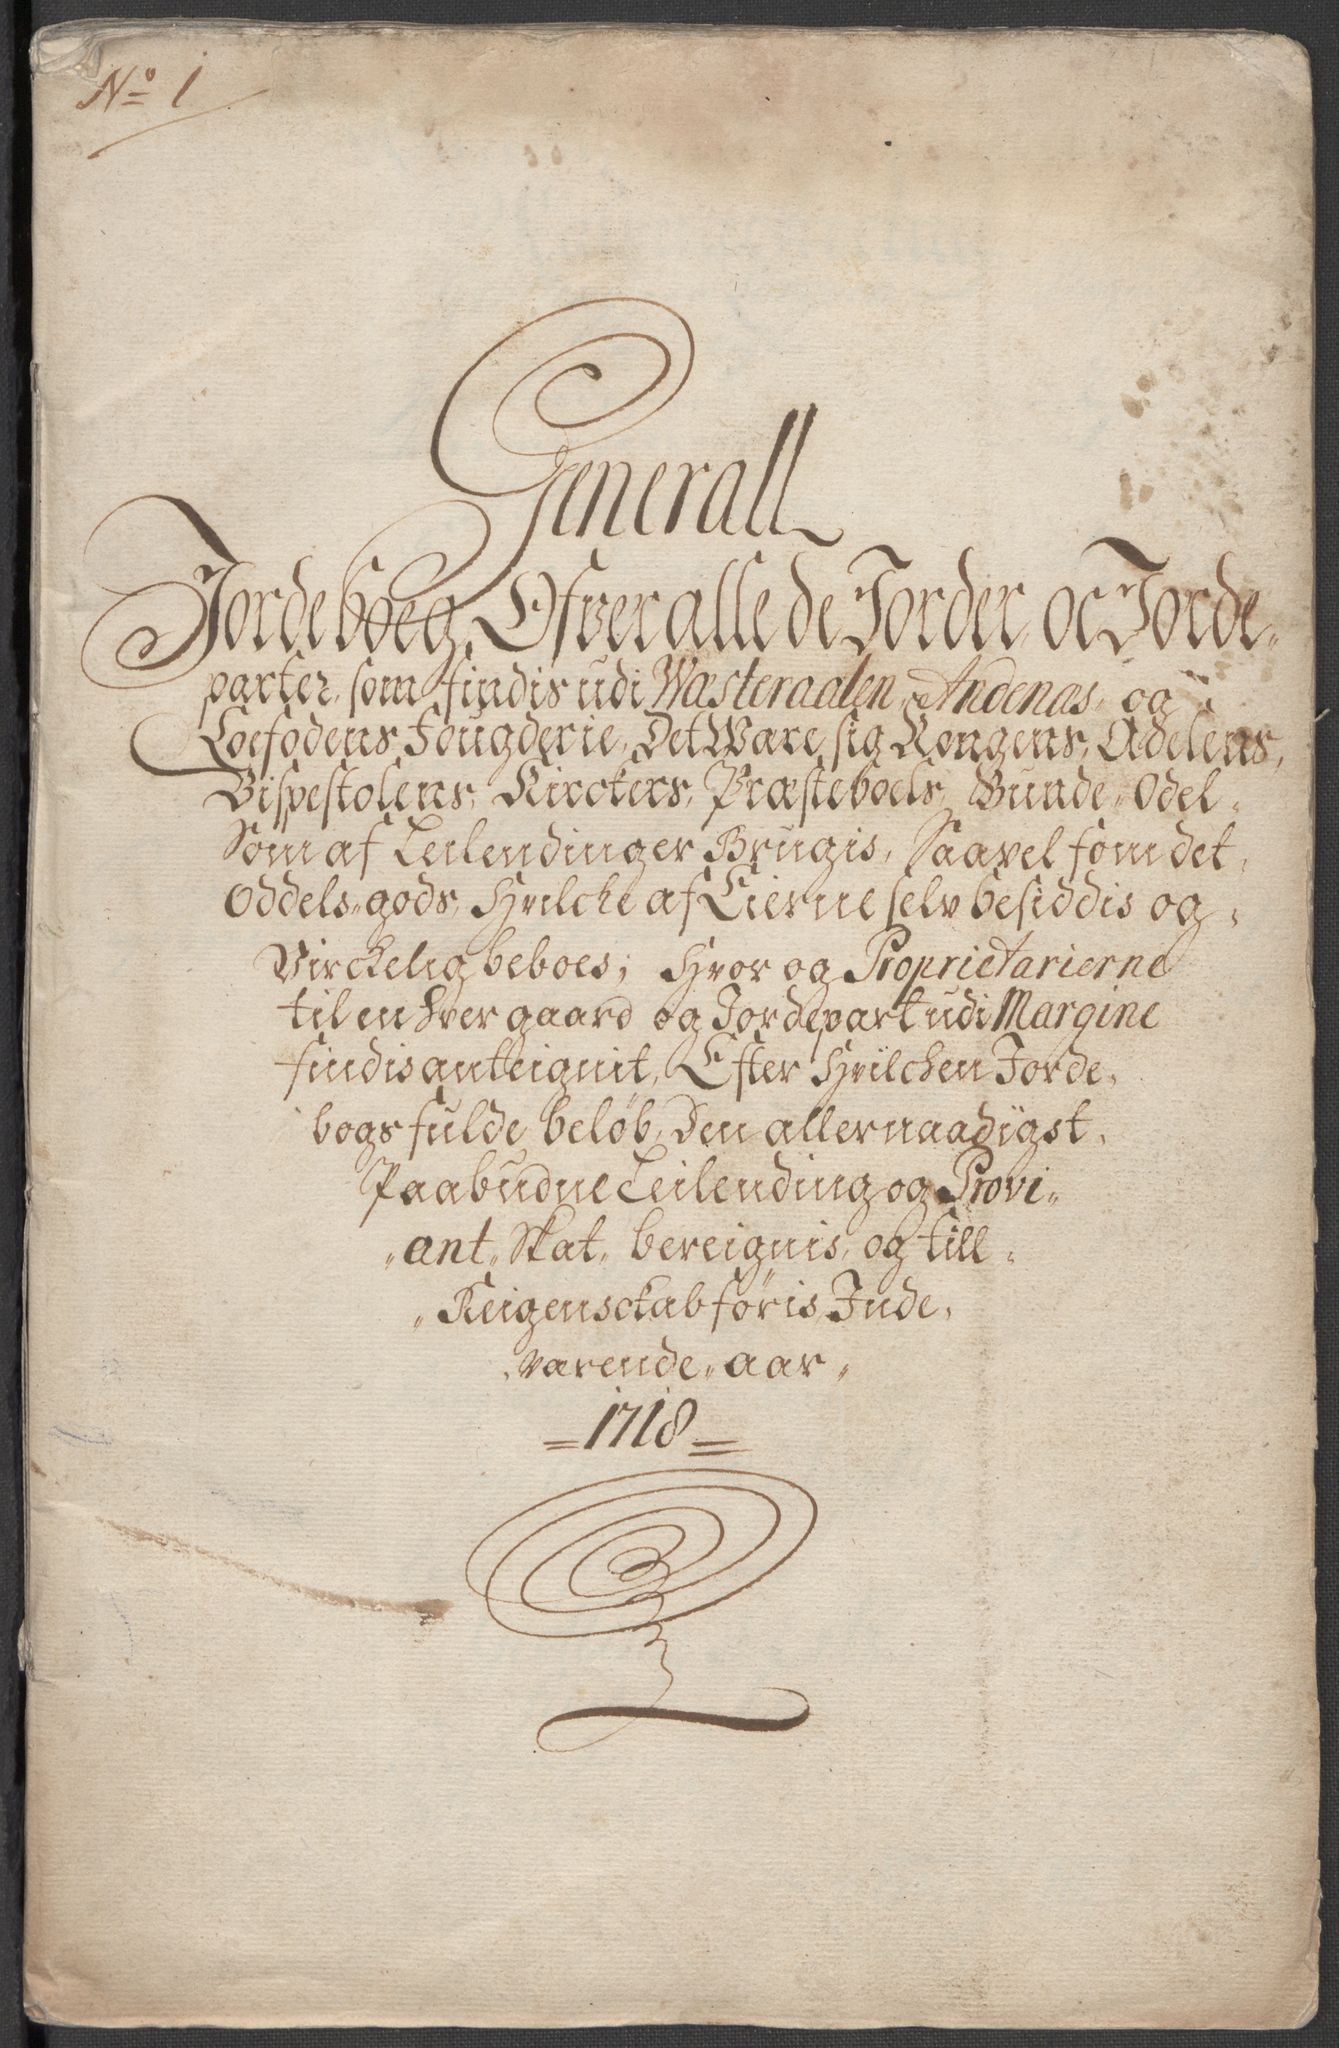 No 1
Generall
Jordeboeg, Ofver alle de Jorder, oc Jorde„
parter, som findis udi Wæsteraalen, Andenæs, og
Loefodens Fougderie, Det Være sig Kongens, Adelens,
Bispestolens, Kirckers, Præsteboels, Bunde„Odel„
Som af Leilendinger Brugis, Saavel som det,
Oddels„gods, Hvilcke af Eierne selv besiddis og„
Virckelig beboes; Hvor og Proprietarierne
til en hver gaard og Jordepart udi Margine
findis antteignit, Efter Hvilchen Jorde„
bogs fulde beløb, Den allernaadigst,
Paabudne Leilending og Provi„
„ant„Skat, bereignis, og till„
„Reigensckab føris Inde„
„værende„aar„
=1718=